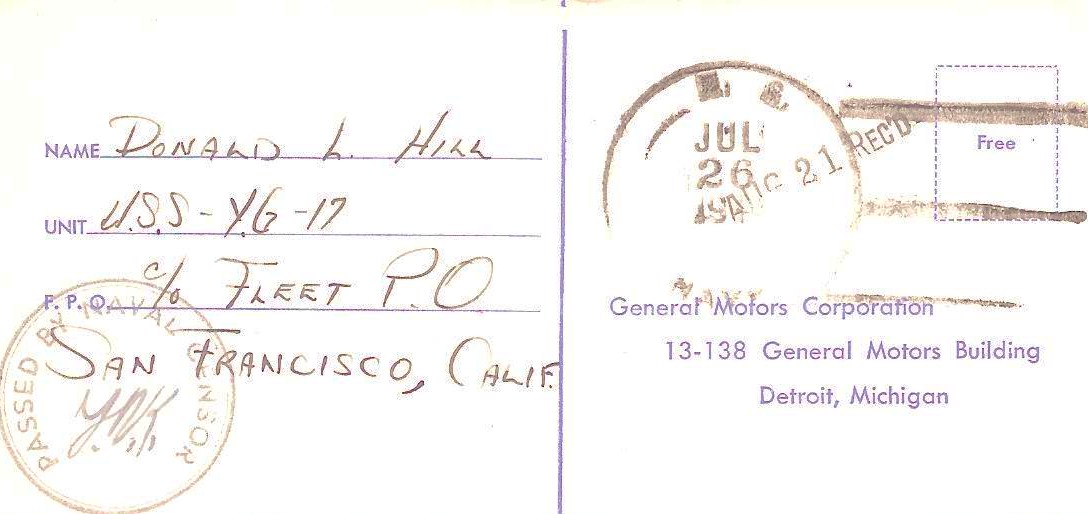 NAME DONALD L. HILL
UNIT U.S.S-Y.G-17
F. P. O. c/o FLEET P.O
SAN FRANCISCO, CALIF.
PASSED BY NAVAL CENSOR
U. S.
JUL
26
AUG 21 REC'D
NAVY
Free
General Motors Corporation
13-138 General Motors Building
Detroit, Michigan